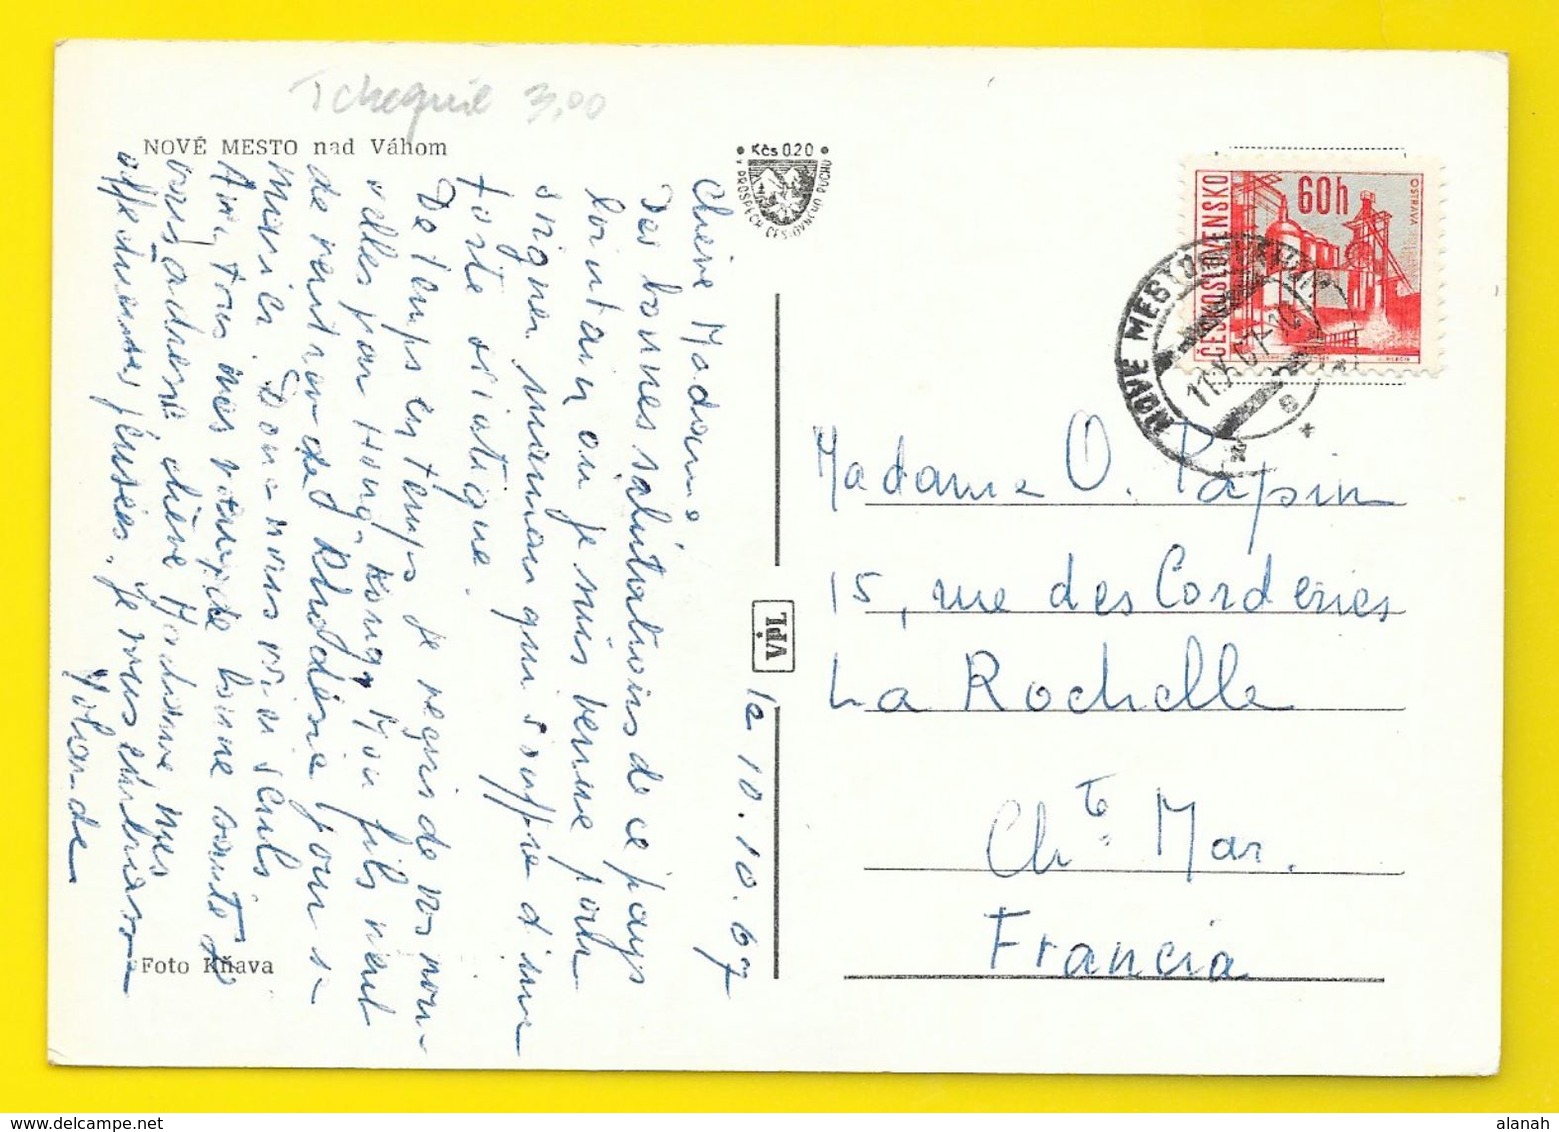 Tchequie 3,00
NOVÉ MESTO nad Váhom
Kčs 0.20
V PROSPĚCH
60h
ČESKOSLOVENSKO
OSTRAVA
NOVÉ MESTO
Chère Madame
Des bonnes salutations de ce pays
lointain où je suis venue pour
soigner maman qui souffre d'une
forte sciatique.
De temps en temps je reçus de vos nou-
velles par Hong-Kong. Mon fils vient
de rentrer de Rhodésie pour se
marier. Donc nous vieux seuls.
tous mes vœux de bonne santé
vous adresse chère Madame mes
affectueuses pensées. Je vous embrasse
Yolande
12 10.10.67
VpL
Madame O. Papin
15, rue des Corderies
La Rochelle
Chte Mar.
Francia
Foto Kňava
alanah